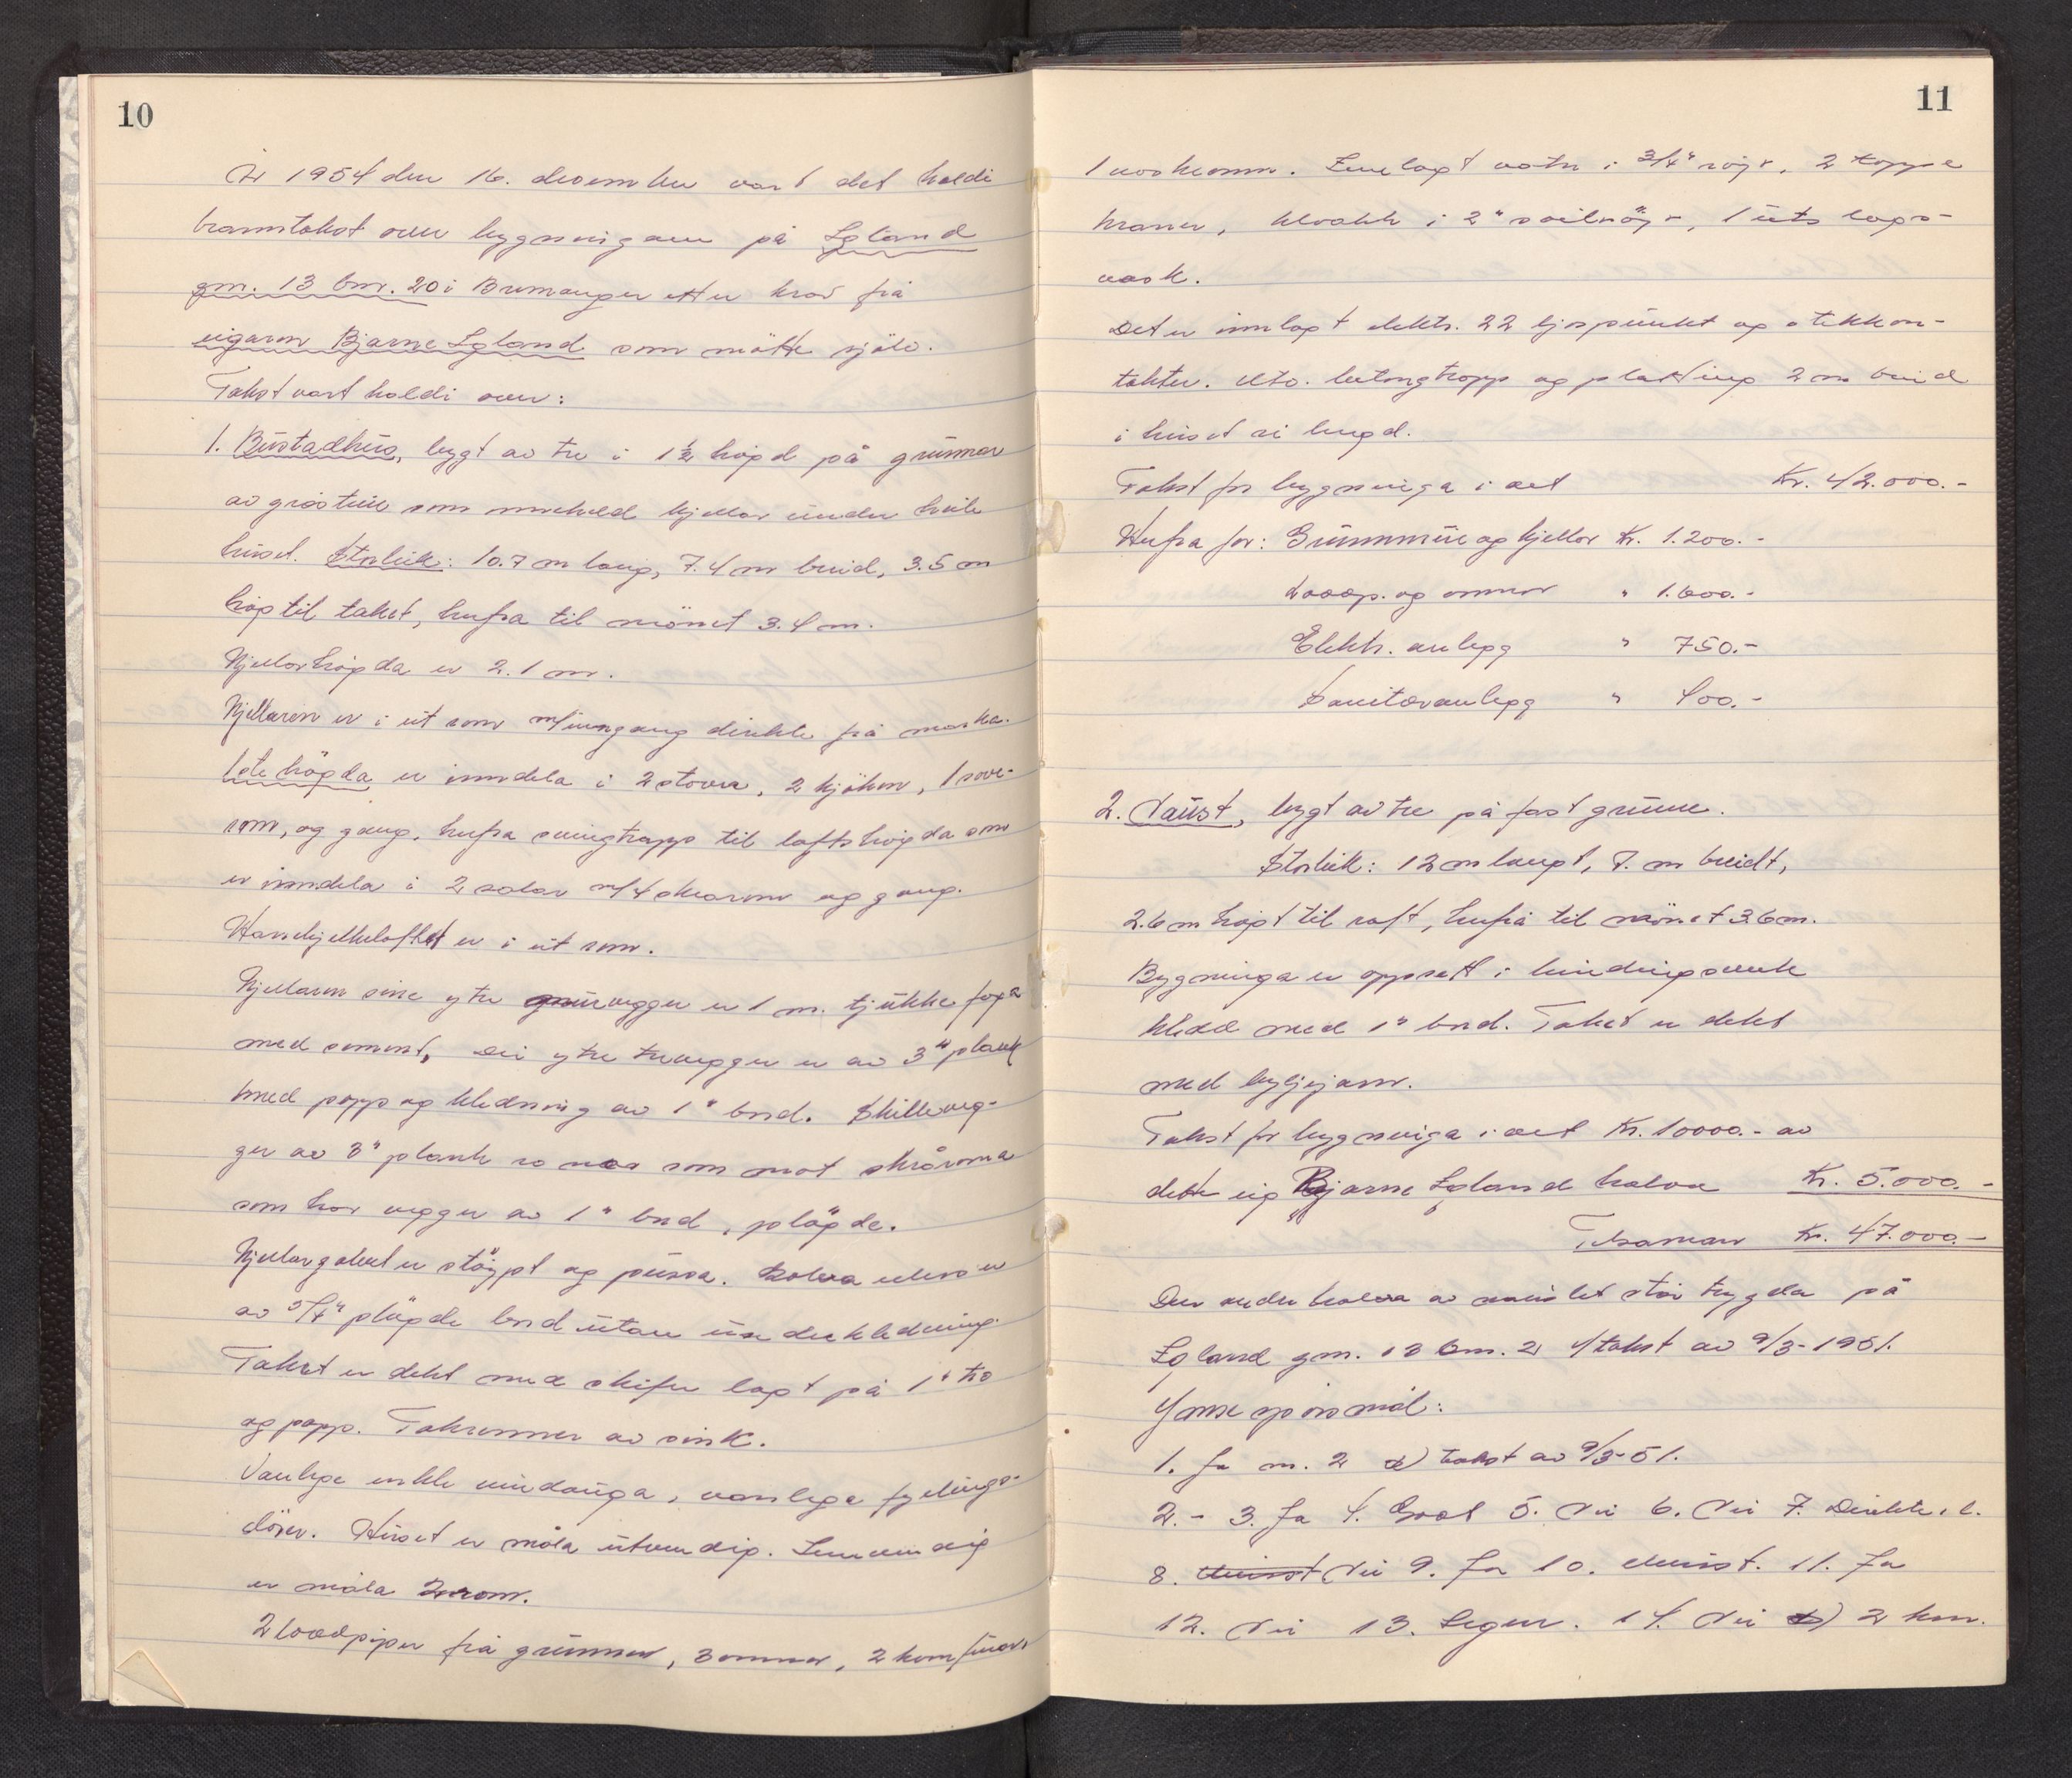 10
År 1954 den 16. desember vart det haldi
branntakst over bygningane på Igland
gnr. 13 bnr. 20 i Bremanger etter krav frå
eigaren Bjarne Igland som møtte sjølv.
Takst vart haldi over:
1. Bustadhus, bygt av tre i 1½ høgd på grunnmur
av gråstein som inneheld kjellar under heile
huset. Storleik: 10.7 m lang, 7.4 m breid, 3.5 m
høg til taket, herfra til mønet 3.4 m.
Kjellarhøgda er 2.1 m.
Kjellaren er i eit rom m/inngang direkte frå marka.
1ste høgda er inndela i 2 stover, 2 kjøken, 1 sove-
rom, og gang. herfra svingtrapp til loftshøgda som
er inndela i 2 salar m/4 skårom og gang.
Hanebjelkeloftet er i eit rom.
Kjellaren sine ytre vegger er 1 m. tjukke foga
med sement, Dei ytre trevegger er av 3" plank
med papp og kledning av 1" bord. Skilleveg-
ger av 3" plank so nær som mot skråroma
som har vegger av 1" bord, pløgde.
Kjellargolvet er støypt og pussa. Golva elles er
av 5/4" pløgde bord utan underkledning.
Taket er dekt med skifer lagt på 1" tro
og papp. Takrenner av sink.
Vanlege enkle vindauga, vanlege fyllings-
dører. Huset er måla utvendig. Innvendig
er måla 2 rom.
2 loddpiper frå grunnen, 3 omnar, 2 komfurar
11
1 vaskeomn. Innlagt vatn i 3/4" røyr, 2 tappe
kraner, kloakk i 2" soilrøyr, 1 utslags-
vask.
Det er innlagt elektr. 22 ljospunkt og stikkon-
takter. Utv. betongtrapp og platting 2 m breid
i huset si lengd.
Takst for bygninga i alt Kr. 42.000.-
Herfra for: Grunnmur og kjellar Kr. 1.200.-
Loddp. og omnar " 1.600.-
Elektr. anlegg " 750.-
Sanitæranlegg " 400.-
2. Naust, bygt av tre på fast grunn.
Storleik: 12 m langt, 7. m breidt,
2.6 m høgt til raft, herfrå til mønet 3.6 m.
Bygninga er oppsett i bindingsverk
kledd med 1" bord. Taket er dekt
med bylgjejarn.
Takst for bygninga i alt Kr. 10000.- av
dette eig Bjarne Igland halva Kr. 5.000.-
Tilsaman Kr. 47.000.-
Den andre halva av naustet står trygda på
Igland gnr. 13 bnr. 2 i/takst av 9/3-1951.
Ymse spørsmål:
1. Ja m. 2 takst av 9/3-51.
2. - 3. Ja 4. Godt 5. Nei 6. Nei 7. Direkte, b.
8. Nei 9. Ja 10. Minst. 11. Ja
12. Nei 13. Ingen. 14. Nei b) 2 km.